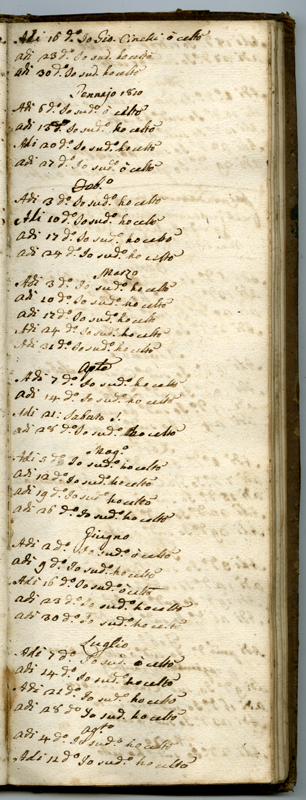 Adi 16 d.º Io Gio. Cinelli ò celto
adi 23 d.º Io sud. ho celto
adi 30 d.º Io sud. ho celto
Gennajo 1810
Adi 6 d.º Io sud.º ò celto
adi 13 d.º Io sud.º ho celto
Adi 20 d.º Io sud.º ho celto
adi 27 d.º Io sud.º ò celto
Feb.º
Adi 3 d.º Io sud.º ho celto
Adi 10 d.º Io sud.º ho celto
adi 17 d.º Io sud.º ho celto
adi 24 d.º Io sud.º ho celto
Marzo
Adi 3 d.º Io sud.º ho celto
adi 10 d.º Io sud.º ho celto
adi 17 d.º Io sud.º ho celto
Adi 24 d.º Io sud.º ho celto
Adi 31 d.º Io sud.º ho celto
Adi 7 d.º Io sud.º ho celto
adi 14 d.º Io sud.º ho celto
Adi 21: Sabato S.
adi 28 d.º Io sud.º ho celto
Mag.º
Adi 5 d.º Io sud.º ho celto
adi 12 d.º Io sud.º ho celto
adi 19 d.º Io sud.º ho celto
adi 26 d.º Io sud.º ho celto
Giugno
Adi 2 d.º Io sud.º ò celto
adi 9 d.º Io sud.º ho celto
Adi 16 d.º Io sud.º ò celto
adi 23 d.º Io sud.º ho celto
adi 30 d.º Io sud.º ho celto
Luglio
Adi 7 d.º Io sud.º ò celto
adi 14 d.º Io sud.º ho celto
Adi 21 d.º Io sud.º ho celto
adi 28 d.º Io sud.º ho celto
ag.º
adi 4 d.º Io sud.º ho celto
Adi 12 d.º Io sud.º ho celto